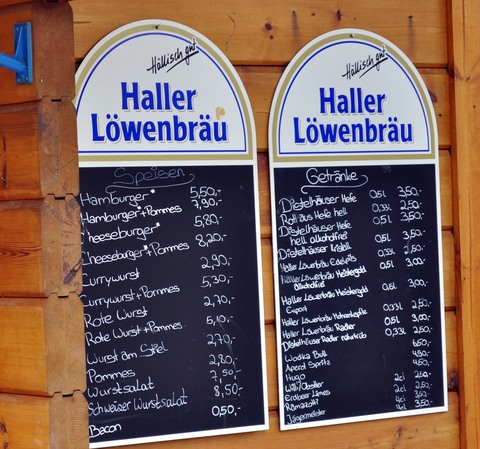 Höllisch gut
Haller
Löwenbräu
Speisen
Hamburger* 5,50,-
Hamburger*+Pommes 7,90,-
Cheeseburger* 5,80,-
Cheeseburger*+Pommes 8,20,-
Currywurst 2,90,-
Currywurst+Pommes 5,30,-
Rote Wurst 2,70,-
Rote Wurst+Pommes 5,10,-
Wurst am Stiel 2,70,-
Pommes 2,80,-
Wurstsalat 7,50,-
Schweizer Wurstsalat 8,50,-
Bacon 0,50,-
Höllisch gut
Haller
Löwenbräu
Getränke
Distelhäuser Hefe 0,5l 3,50,-
aus Hefe hell 0,33l 2,50,-
Distelhäuser Hefe 0,5l 3,50,-
hell alkoholfrei
Distelhäuser Kristall 0,5l 3,50,-
Haller Löwenbräu Edelpils 0,33l 2,50,-
Haller Löwenbräu Meistergold 0,5l 3,00,-
alkoholfrei
Haller Löwenbräu Meistergold
Export
Haller Löwenbräu Mohrenköpfle 0,33l 2,50,-
Haller Löwenbräu Radler 0,5l 3,00,-
Distelhäuser Radler naturtrüb 0,33l 2,50,-
Wodka Bull 6,50,-
Aperol Spritz 4,50,-
Hugo 4,50,-
Willi/Obstler 2cl 2,50,-
Erdbeer Limes 2cl 2,50,-
Ramazotti 4cl 3,50,-
Jägermeister 4cl 3,50,-